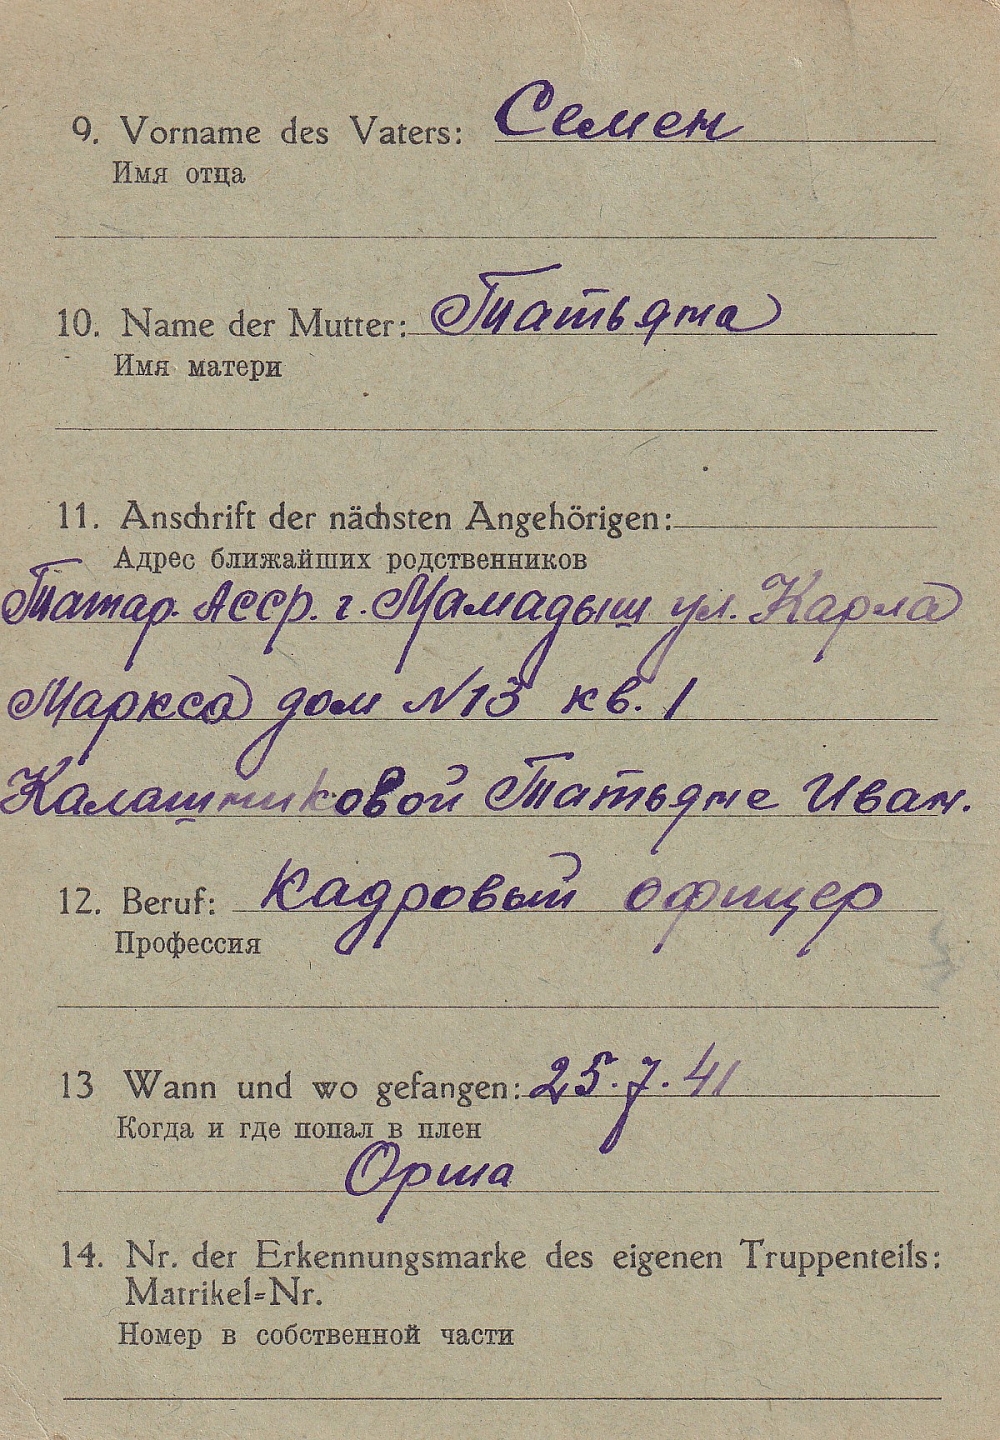 9. Vorname des Vaters: Семен
Имя отца
10. Name der Mutter: Татьяна
Имя матери
11. Anschrift der nächsten Angehörigen:
Адрес ближайших родственников
Татар. Асср. г. Мамадыш ул. Карла
Маркса дом N13 кв. 1
Калашниковой Татьяне Иван.
12. Beruf: кадровый офицер
Профессия
13 Wann und wo gefangen: 25.7.41
Когда и где попал в плен
Орша
14. Nr. der Erkennungsmarke des eigenen Truppenteils:
Matrikel=Nr.
Номер в собственной части